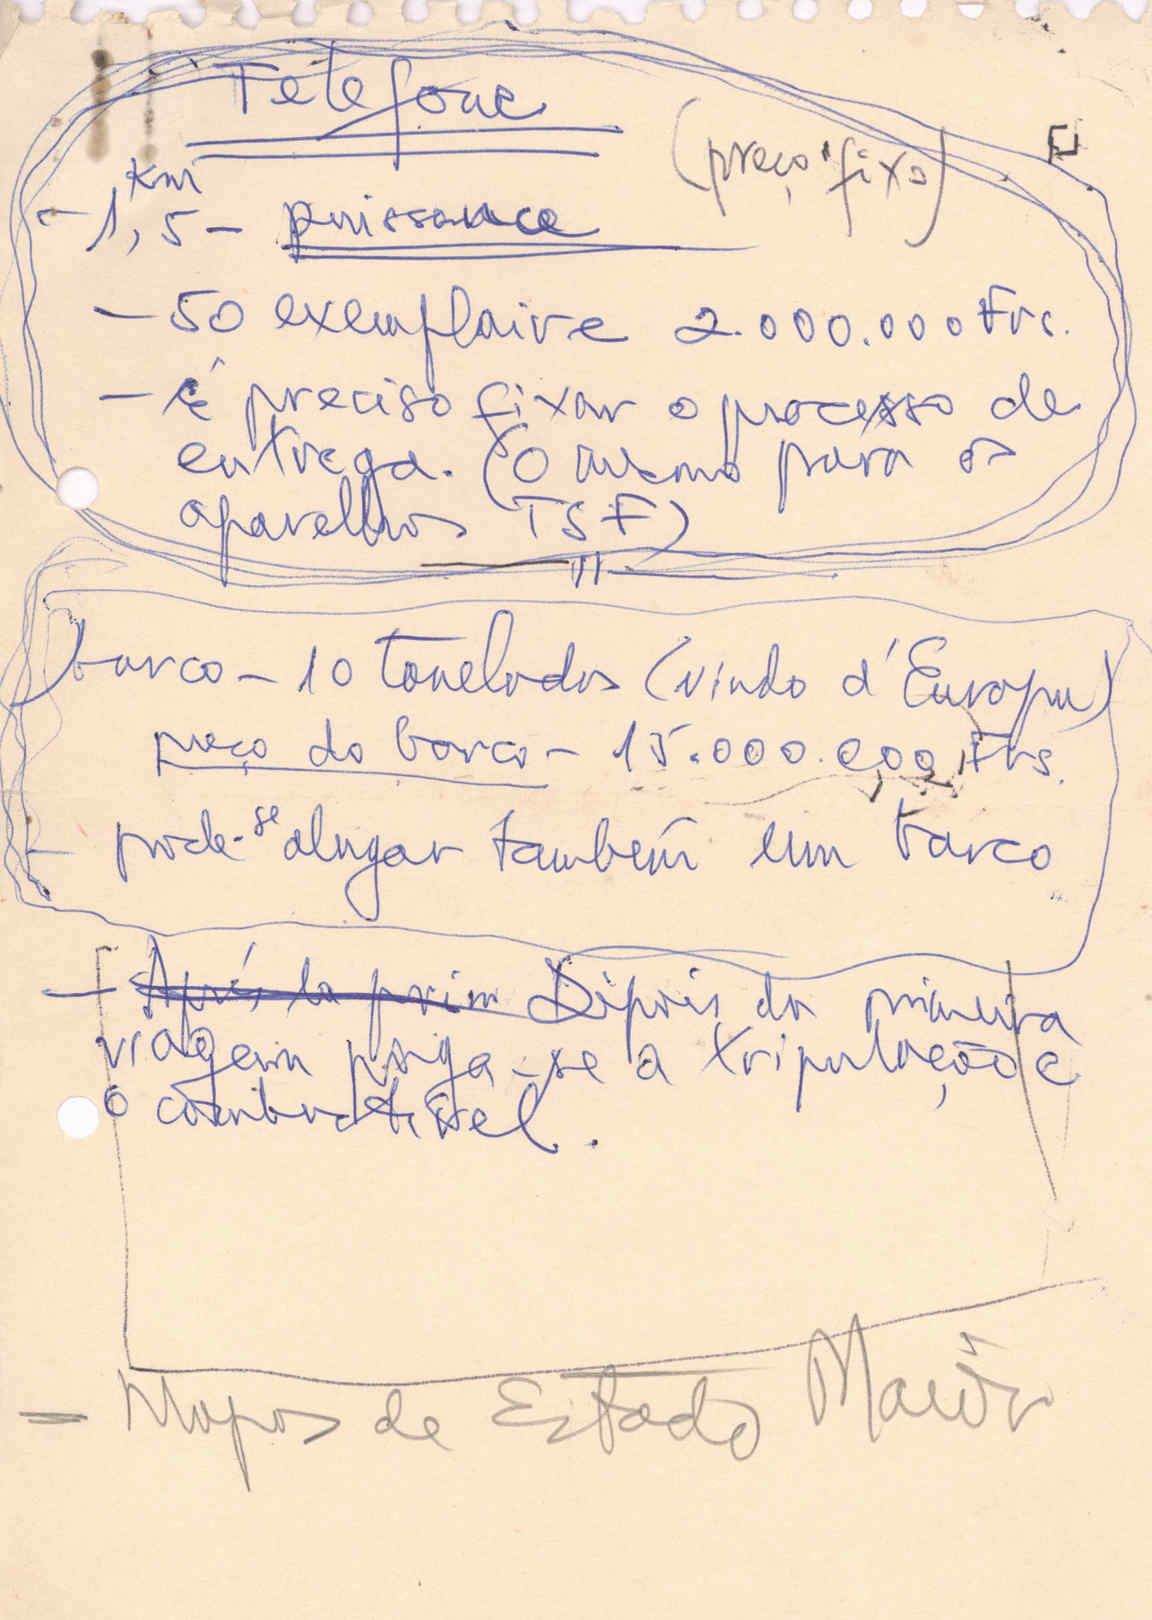 Telefone
(preço fixo)
Km
- 1,5 - puissance
- 50 exemplaire 2.000.000 Frs.
- é preciso fixar o processo de
entrega. (O mesmo para os
aparelhos TSF)
barco - 10 toneladas (vindo d'Europa)
preço do barco - 15.000.000 Frs.
- pode-se alugar também um barco
- Après la prim Dipois da primeira
viagem paga-se a tripulação e
o combustível.
- Mapas de Estado Maior